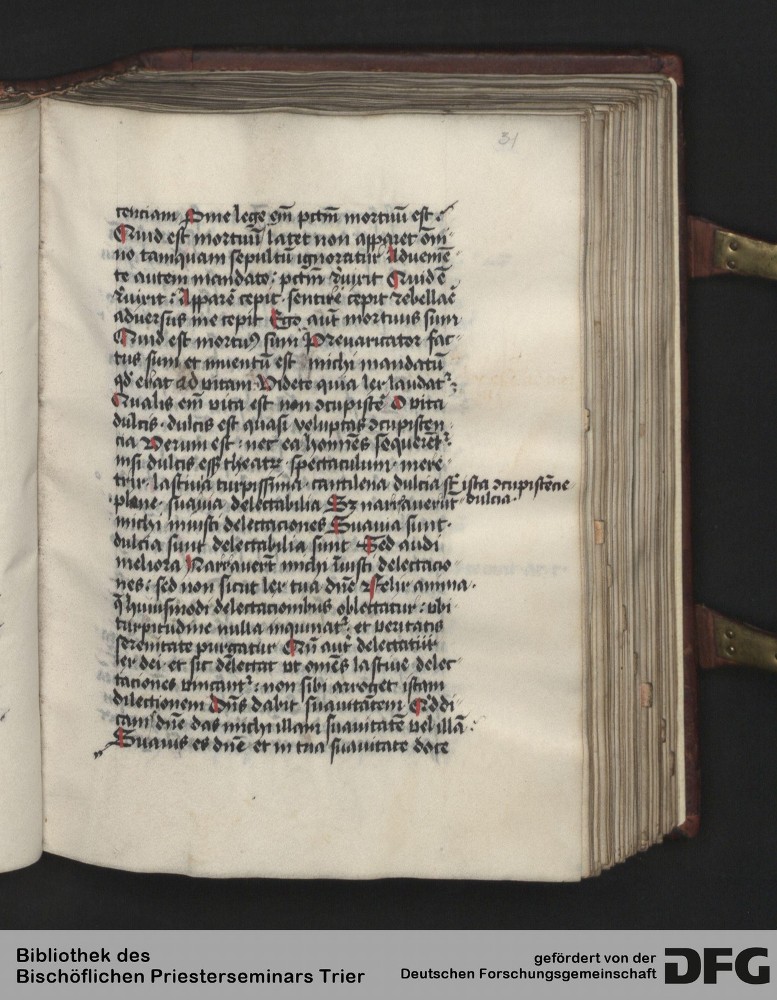 31
tenciam Sine lege em̄ pctm̄ mortuū est :
Quid est mortuū latet non apparet om̄i
no tamquam sepultū ignoratur Adueniē
te autem mandato : pctm̄ reuixit Quid ē
reuixit : Apparē cepit · sentire cepit rebellaē
aduersus me cepit Ego aut̄ mortuus sum
Quid est mortuꝰ sum Preuaricator fac
tus sum et inuentū est michi mandatū
qd̄ erat ad vitam Videte quia lex laudat᷑ :
Qualis em̄ vita est non ꝯcupiste O vita
dulcis · dulcis est quasi voluptas ꝯcupisten
cia Verum est : nec ea homines sequerēt᷑ :
nisi dulcis ess̄ theatr̄ · spectaculum · mere
trix · lasciua turpissima · cantilena dulcia st̄ ista ꝯcupistēcie
plane · suauia delectabilia Sꝫ narrauerūt dulcia ·
michi iniusti delectaciones Suauia sunt ·
dulcia sunt delectabilia sunt Sed audi
meliora Narrauerūt michi īiusti delectacio
nes : sed non sicut lex tua dn̄e Felix anima ·
q̄ huiusmodi delectacionibus oblectatur : vbi
turpitudine nulla inquinat᷑ : et veritatis
serenitate purgatur Cuī aut̄ delectatur
lex dei · et sic delectat vt om̄es lasciuie delec
taciones vincant᷑ : non sibi arroget istam
dilectionem Dn̄s dabit suauitatem
cam dn̄e das michi illam suauitatē vel illā :
Suauis es dn̄e et in tua suauitate doce
Bibliothek des
Bischöflichen Priesterseminars Trier
gefördert von der
Deutschen Forschungsgemeinschaft
DFG